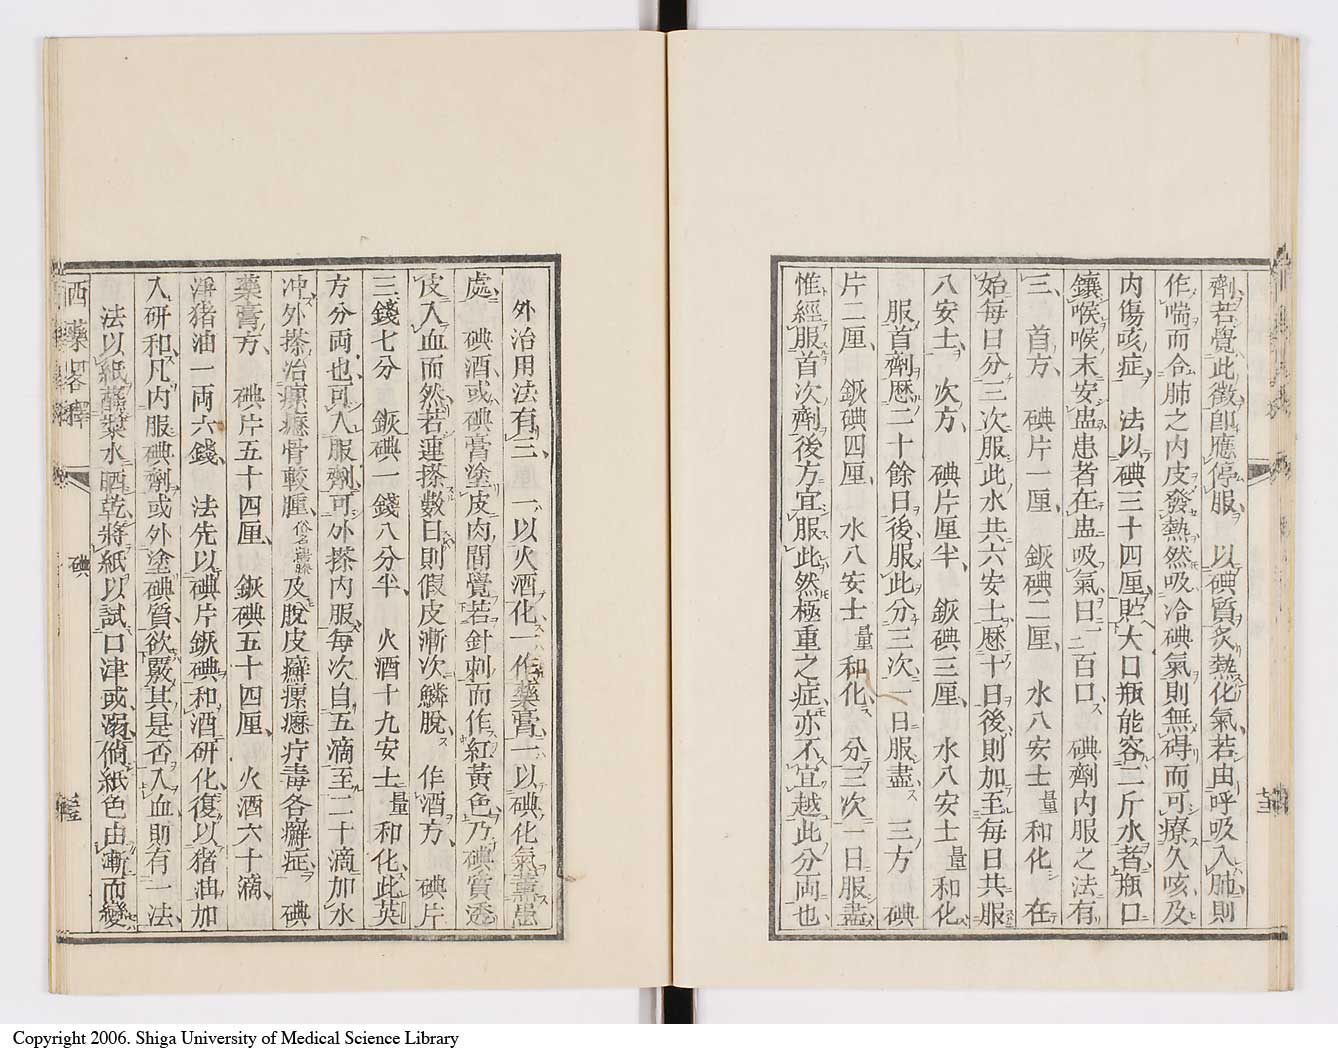 劑若覺此徵卽應停服　以碘質炙熱化氣若由呼吸入肺則
作喘而令肺之內皮發熱然吸冷碘氣則無碍而可療久咳及
內傷咳症　法以碘三十四厘貯大口瓶能容二斤水者瓶口
鑲喉喉末安盅患者在盅吸氣日一二百口　碘劑內服之法有
三　首方　碘片一厘　鋠碘二厘　水八安士量和化　在
始每日分三次服此水共六安士歷十日後則加至每日共服
八安士　次方　碘片厘半　鋠碘三厘　水八安士量和化
服首劑歷二十餘日後服此分三次一日服盡　三方　碘
片二厘　鋠碘四厘　水八安士量和化　分三次一日服盡
惟經服首次劑後方宜服此然極重之症亦不宜越此分両也
外治用法有三　一以火酒化一作藥膏一以碘化氣薰患
處　碘酒或碘膏塗皮肉間覺若針刺而作紅黃色乃碘質透
皮入血而然若連搽數日則假皮漸次鱗脫　作酒方　碘片
三錢七分　鋠碘一錢八分半　火酒十九安士量和化此英
方分両也可入服劑可外搽內服每次自五滴至二十滴加水
冲外搽治瘰癧骨較腫俗名鶴膝及脫皮癬瘰癧疔毒各癬症　碘
藥膏方　碘片五十四厘　鋠碘五十四厘　火酒六十滴
淨猪油一両六錢　法先以碘片鋠碘和酒研化復以猪油加
入研和凡內服碘劑或外塗碘質欲覈其是否入血則有一法
法以紙蘸漿水晒乾將紙以試口津或溺倘紙色由漸而變
西藥畧釋
碘
Copyright 2006. Shiga University of Medical Science Library